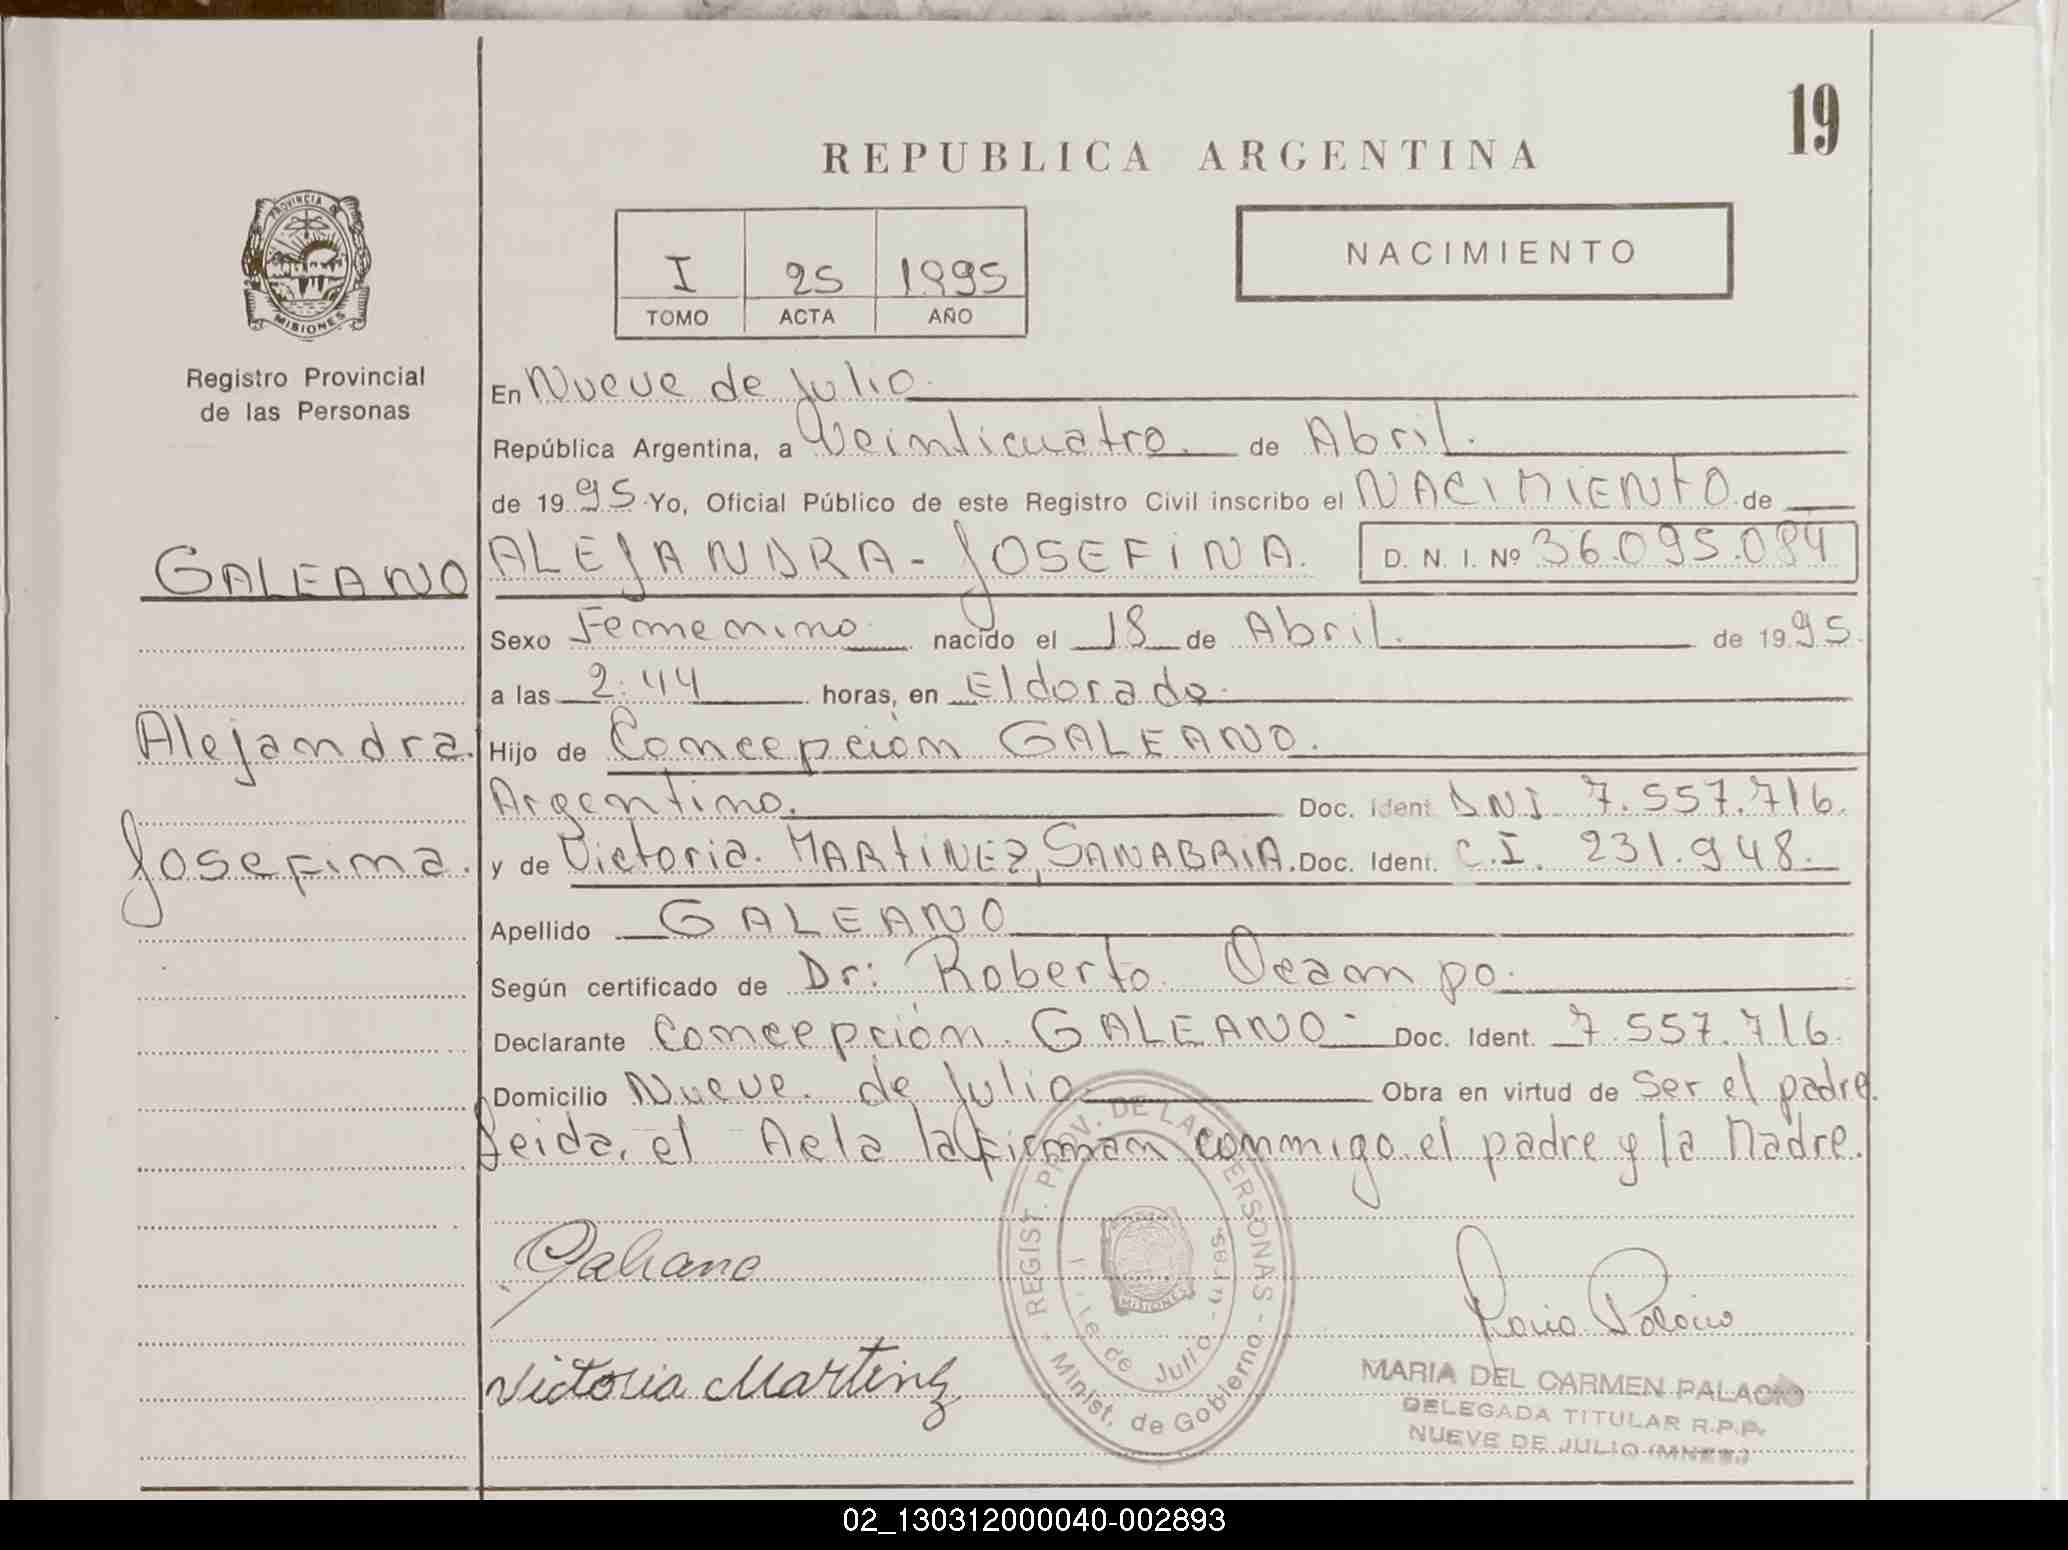 19
REPUBLICA ARGENTINA
PROVINCIA DE
MISIONES
Registro Provincial
de las Personas
I 25 1995
TOMO ACTA AÑO
NACIMIENTO
En Nueve de Julio.
República Argentina, a Veinticuatro. de Abril.
de 1995 Yo, Oficial Público de este Registro Civil inscribo el NACIMIENTO de
GALEANO
ALEJANDRA-JOSEFINA. D. N. I. Nº 36.095.084
Sexo Femenino. nacido el 18 de Abril. de 1995.
a las 2:44 horas, en Eldorado.
Alejandra.
Hijo de Concepción GALEANO.
Argentino. Doc. Ident. DNI 7.557.716.
Josefina.
y de Victoria. MARTINEZ, SANABRIA. Doc. Ident. C.I. 231.948.
Apellido GALEANO
Según certificado de Dr: Roberto Ocampo.
Declarante Concepción. GALEANO- Doc. Ident. 7.557.716.
Domicilio Nueve. de Julio Obra en virtud de Ser el padre.
Leida. el Acta la firman conmigo. el padre y la Madre.
Galeano
REGIST. PROV. DE LAS PERSONAS - Minist. de Gobierno -
MISIONES
de Julio
Victoria Martinez
MARIA DEL CARMEN PALACIO
DELEGADA TITULAR R.P.P.
NUEVE DE JULIO (MNES.)
02_130312000040-002893